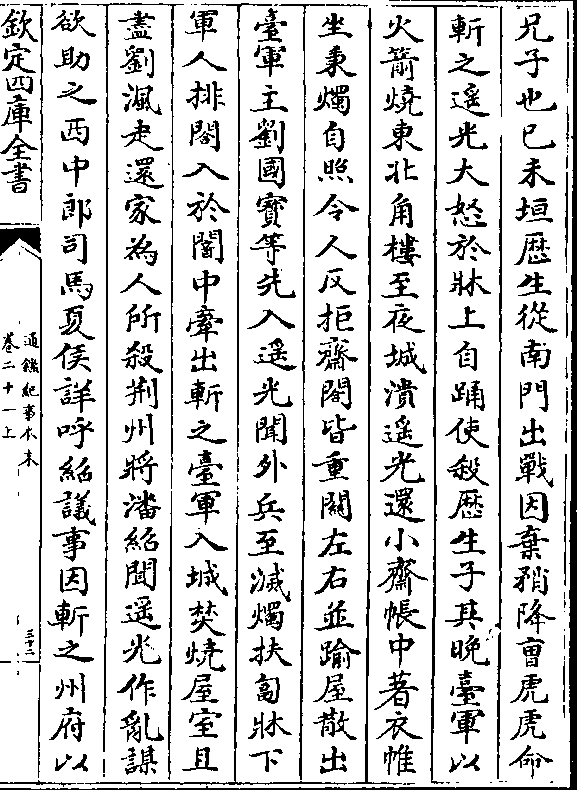 兄子也已未垣歴生從南門出戰因棄矟降曹虎虎命
斬之遥光大怒於牀上自踊使殺歴生子其晩臺軍以
火箭燒東北角樓至夜城潰遥光還小齋帳中著衣帢
坐秉燭自照令人反拒齋閤皆重關左右並踰屋散出
臺軍主劉國寶等先入遥光聞外兵至滅燭扶匐牀下
軍人排閤入於闇中牽出斬之臺軍入城焚燒屋室且
盡劉渢走還家為人所殺荆州將潘紹聞遥光作亂謀
欲助之西中郎司馬夏侯詳呼紹議事因斬之州府以
欽定四庫全書
通鑑紀事本末
卷二十一上
三十二